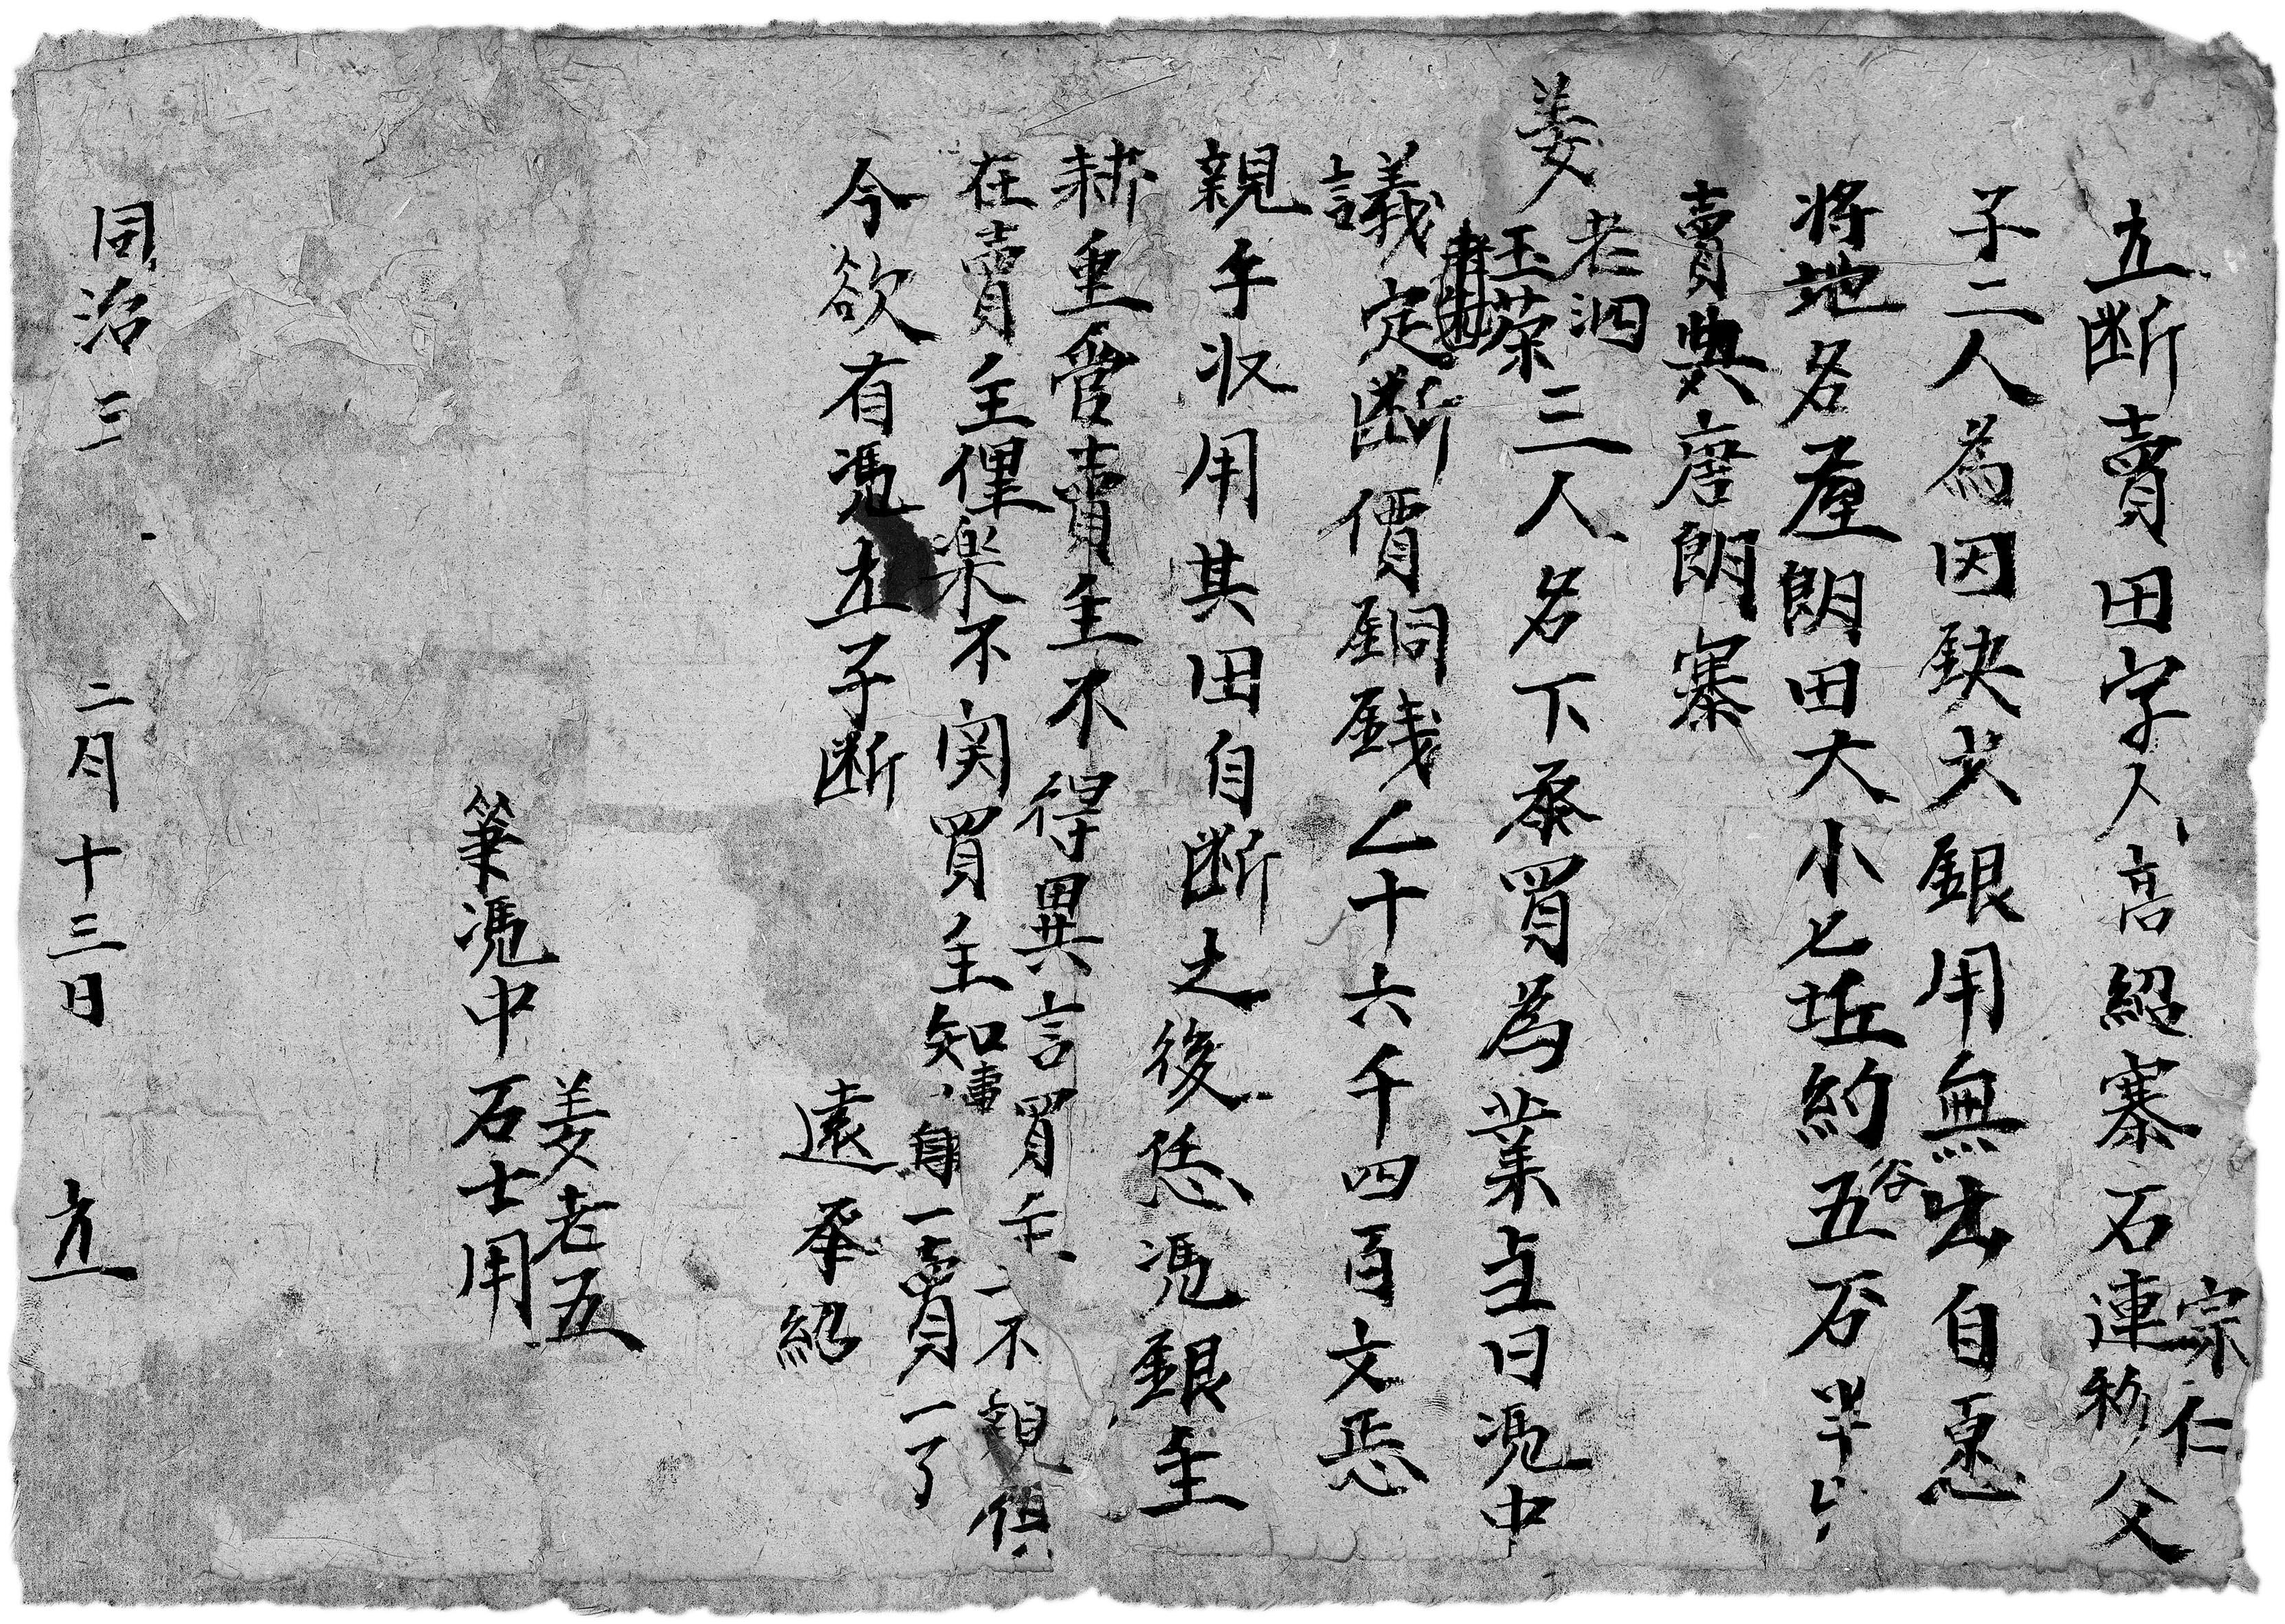 立断賣田字人高紹寨石連移宗仁父
子二人為因缺少銀用無出自愿
將地名𫝹朗田大小七坵約谷五石半
賣與唐朗寨
姜老泗玉荣三人名下承買為業当日憑中
議定断價銅錢乙十六千四百文恁
親手收用其田自断之後恁憑銀主
耕重管賣主不得異言買主不親但
在賣主俚楽不関買主知事一賣一了
今欲有憑立子断
遠承紹
姜老五
筆憑中石士用
同治三 二月十三日 立